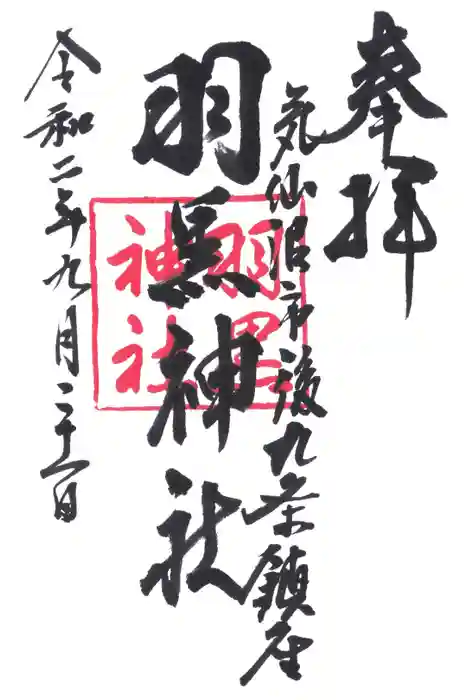 奉拝
気仙沼市後九条鎮座
羽黒神社
羽黒
神社
令和二年九月二十一日